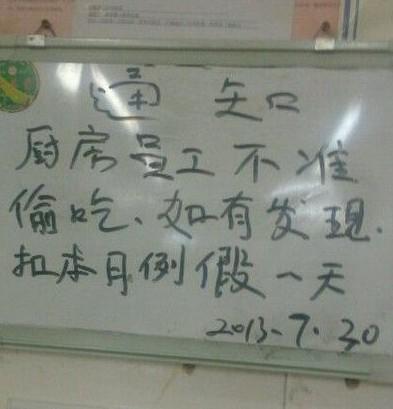 通知
厨房员工不准
偷吃、如有发现.
扣本月例假一天
2013-7.30